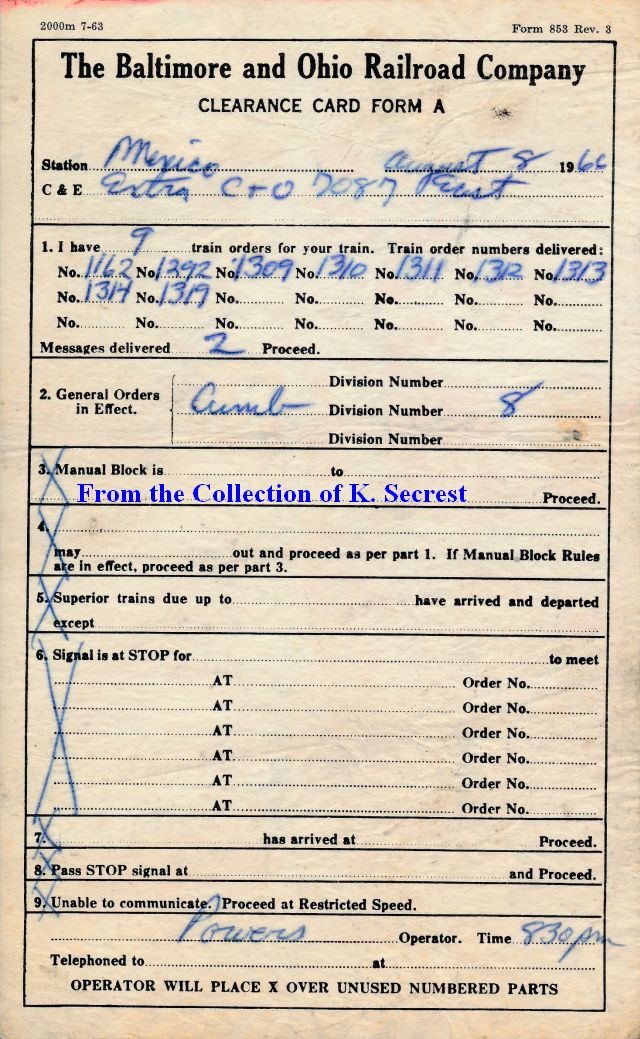 2000m 7-63 Form 853 Rev. 3
The Baltimore and Ohio Railroad Company
CLEARANCE CARD FORM A
Station Mexico August 8 1966
C & E Extra C+O 7087 East
1. I have 9 train orders for your train. Train order numbers delivered:
No. 1162 No. 1292 No. 1309 No. 1310 No. 1311 No. 1312 No. 1313
No. 1314 No. 1319 No. No. No. No. No.
No. No. No. No. No. No. No.
Messages delivered 2 Proceed.
Division Number
2. General Orders in Effect. Cumb Division Number 8
Division Number
3. Manual Block is to
From the Collection of K. Secrest Proceed.
4.
may out and proceed as per part 1. If Manual Block Rules
are in effect, proceed as per part 3.
5. Superior trains due up to have arrived and departed
except
6. Signal is at STOP for to meet
AT Order No.
AT Order No.
AT Order No.
AT Order No.
AT Order No.
AT Order No.
7. has arrived at Proceed.
8. Pass STOP signal at and Proceed.
9. Unable to communicate. Proceed at Restricted Speed.
Powers Operator. Time 830 pm
Telephoned to at
OPERATOR WILL PLACE X OVER UNUSED NUMBERED PARTS